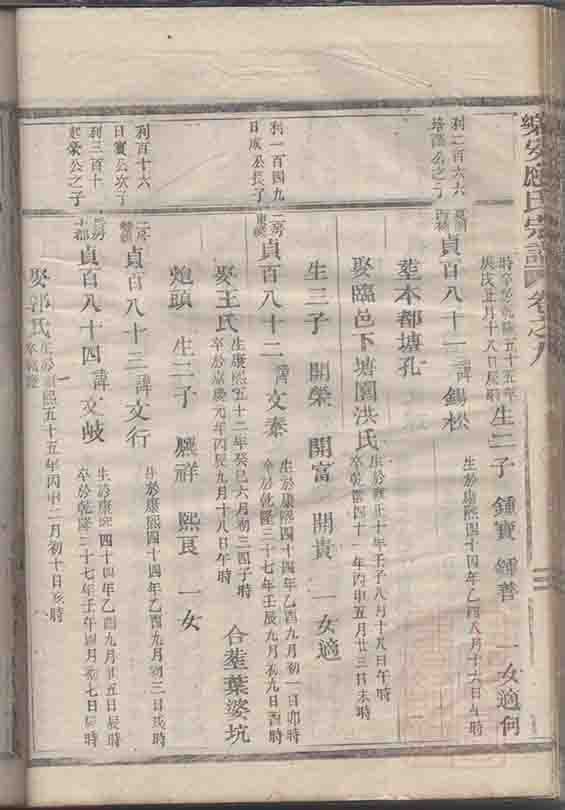 樂安應氏宗譜 卷之八
時卒於乾隆五十五年
庚戌正月十八日辰時
生二子 鍾寶 鍾普 一女適何
利二百六六
培蓀公之子
貞百八十一 諱錫松
生於康熙四十四年乙酉八月十六日午時
塟本都塘孔
娶臨邑下塘園洪氏
生於雍正十年壬子八月十八日午時
卒乾隆四十一年丙申五月廿三日未時
生三子 開榮 開富 開貴 一女適
利一百四九
日成公長子
二房
貞百八十二 諱文泰
生於康熙四十四年乙酉九月初一日卯時
卒於乾隆三十七年壬辰九月初九日酉時
娶王氏
生康熙五十二年癸巳六月初三日子時
卒於嘉慶元年丙辰九月十八日午時
合塟葉婆坑
炮頭 生二子 驥祥 熙良 一女
利百十六
日實公次子
二房
貞百八十三 諱文行
生於康熙四十四年乙酉九月初三日戌時
利三百十
起榮公之子
貞百八十四 諱文岐
生於康熙四十四年乙酉九月廿五日辰時
卒於乾隆二十七年壬午四月初七日辰時
娶郭氏
生於康熙五十五年丙申二月初十日亥時
卒乾隆